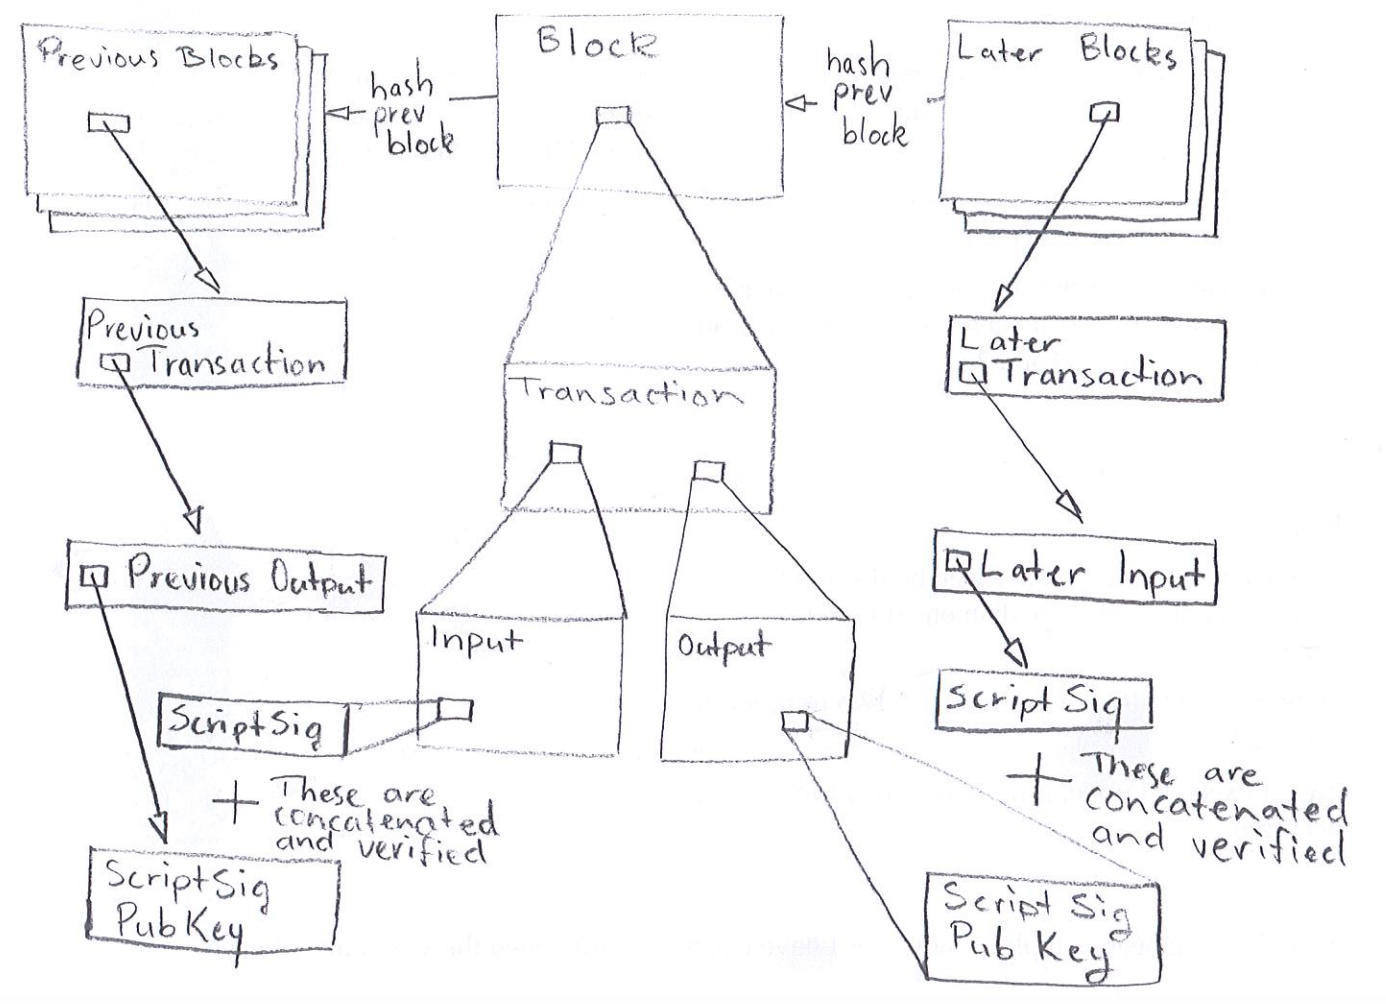 Previous Blocks
hash
prev
block
Block
hash
prev
block
Later Blocks
Previous
Transaction
Transaction
Later
Transaction
Previous Output
Input
Output
Later Input
ScriptSig
Script Sig
+ These are
concatenated
and verified
+ These are
concatenated
and verified
ScriptSig
PubKey
Script Sig
Pub Key